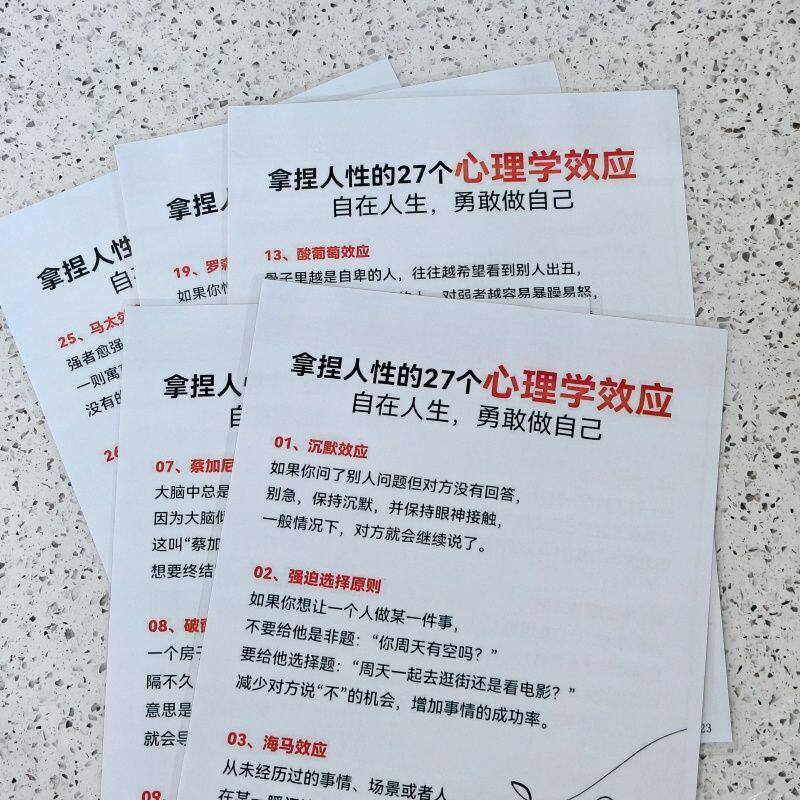 拿捏人性的27个心理学效应
自在人生，勇敢做自己
13、酸葡萄效应
骨子里越是自卑的人，往往越希望看到别人出丑，
对弱者越容易暴躁易怒，
拿捏人
19、罗
如果你
拿捏人性的
自
25、马太效
强者愈强
一则寓
没有的
26
拿捏人
自
07、蔡加尼
大脑中总是
因为大脑
这叫“蔡加
想要终结
08、破
一个房子
隔不久
意思是
就会导
09、
拿捏人性的27个心理学效应
自在人生，勇敢做自己
01、沉默效应
如果你问了别人问题但对方没有回答，
别急，保持沉默，并保持眼神接触，
一般情况下，对方就会继续说了。
02、强迫选择原则
如果你想让一个人做某一件事，
不要给他是非题：“你周天有空吗？”
要给他选择题：“周天一起去逛街还是看电影？”
减少对方说“不”的机会，增加事情的成功率。
03、海马效应
从未经历过的事情、场景或者人
在某一
23